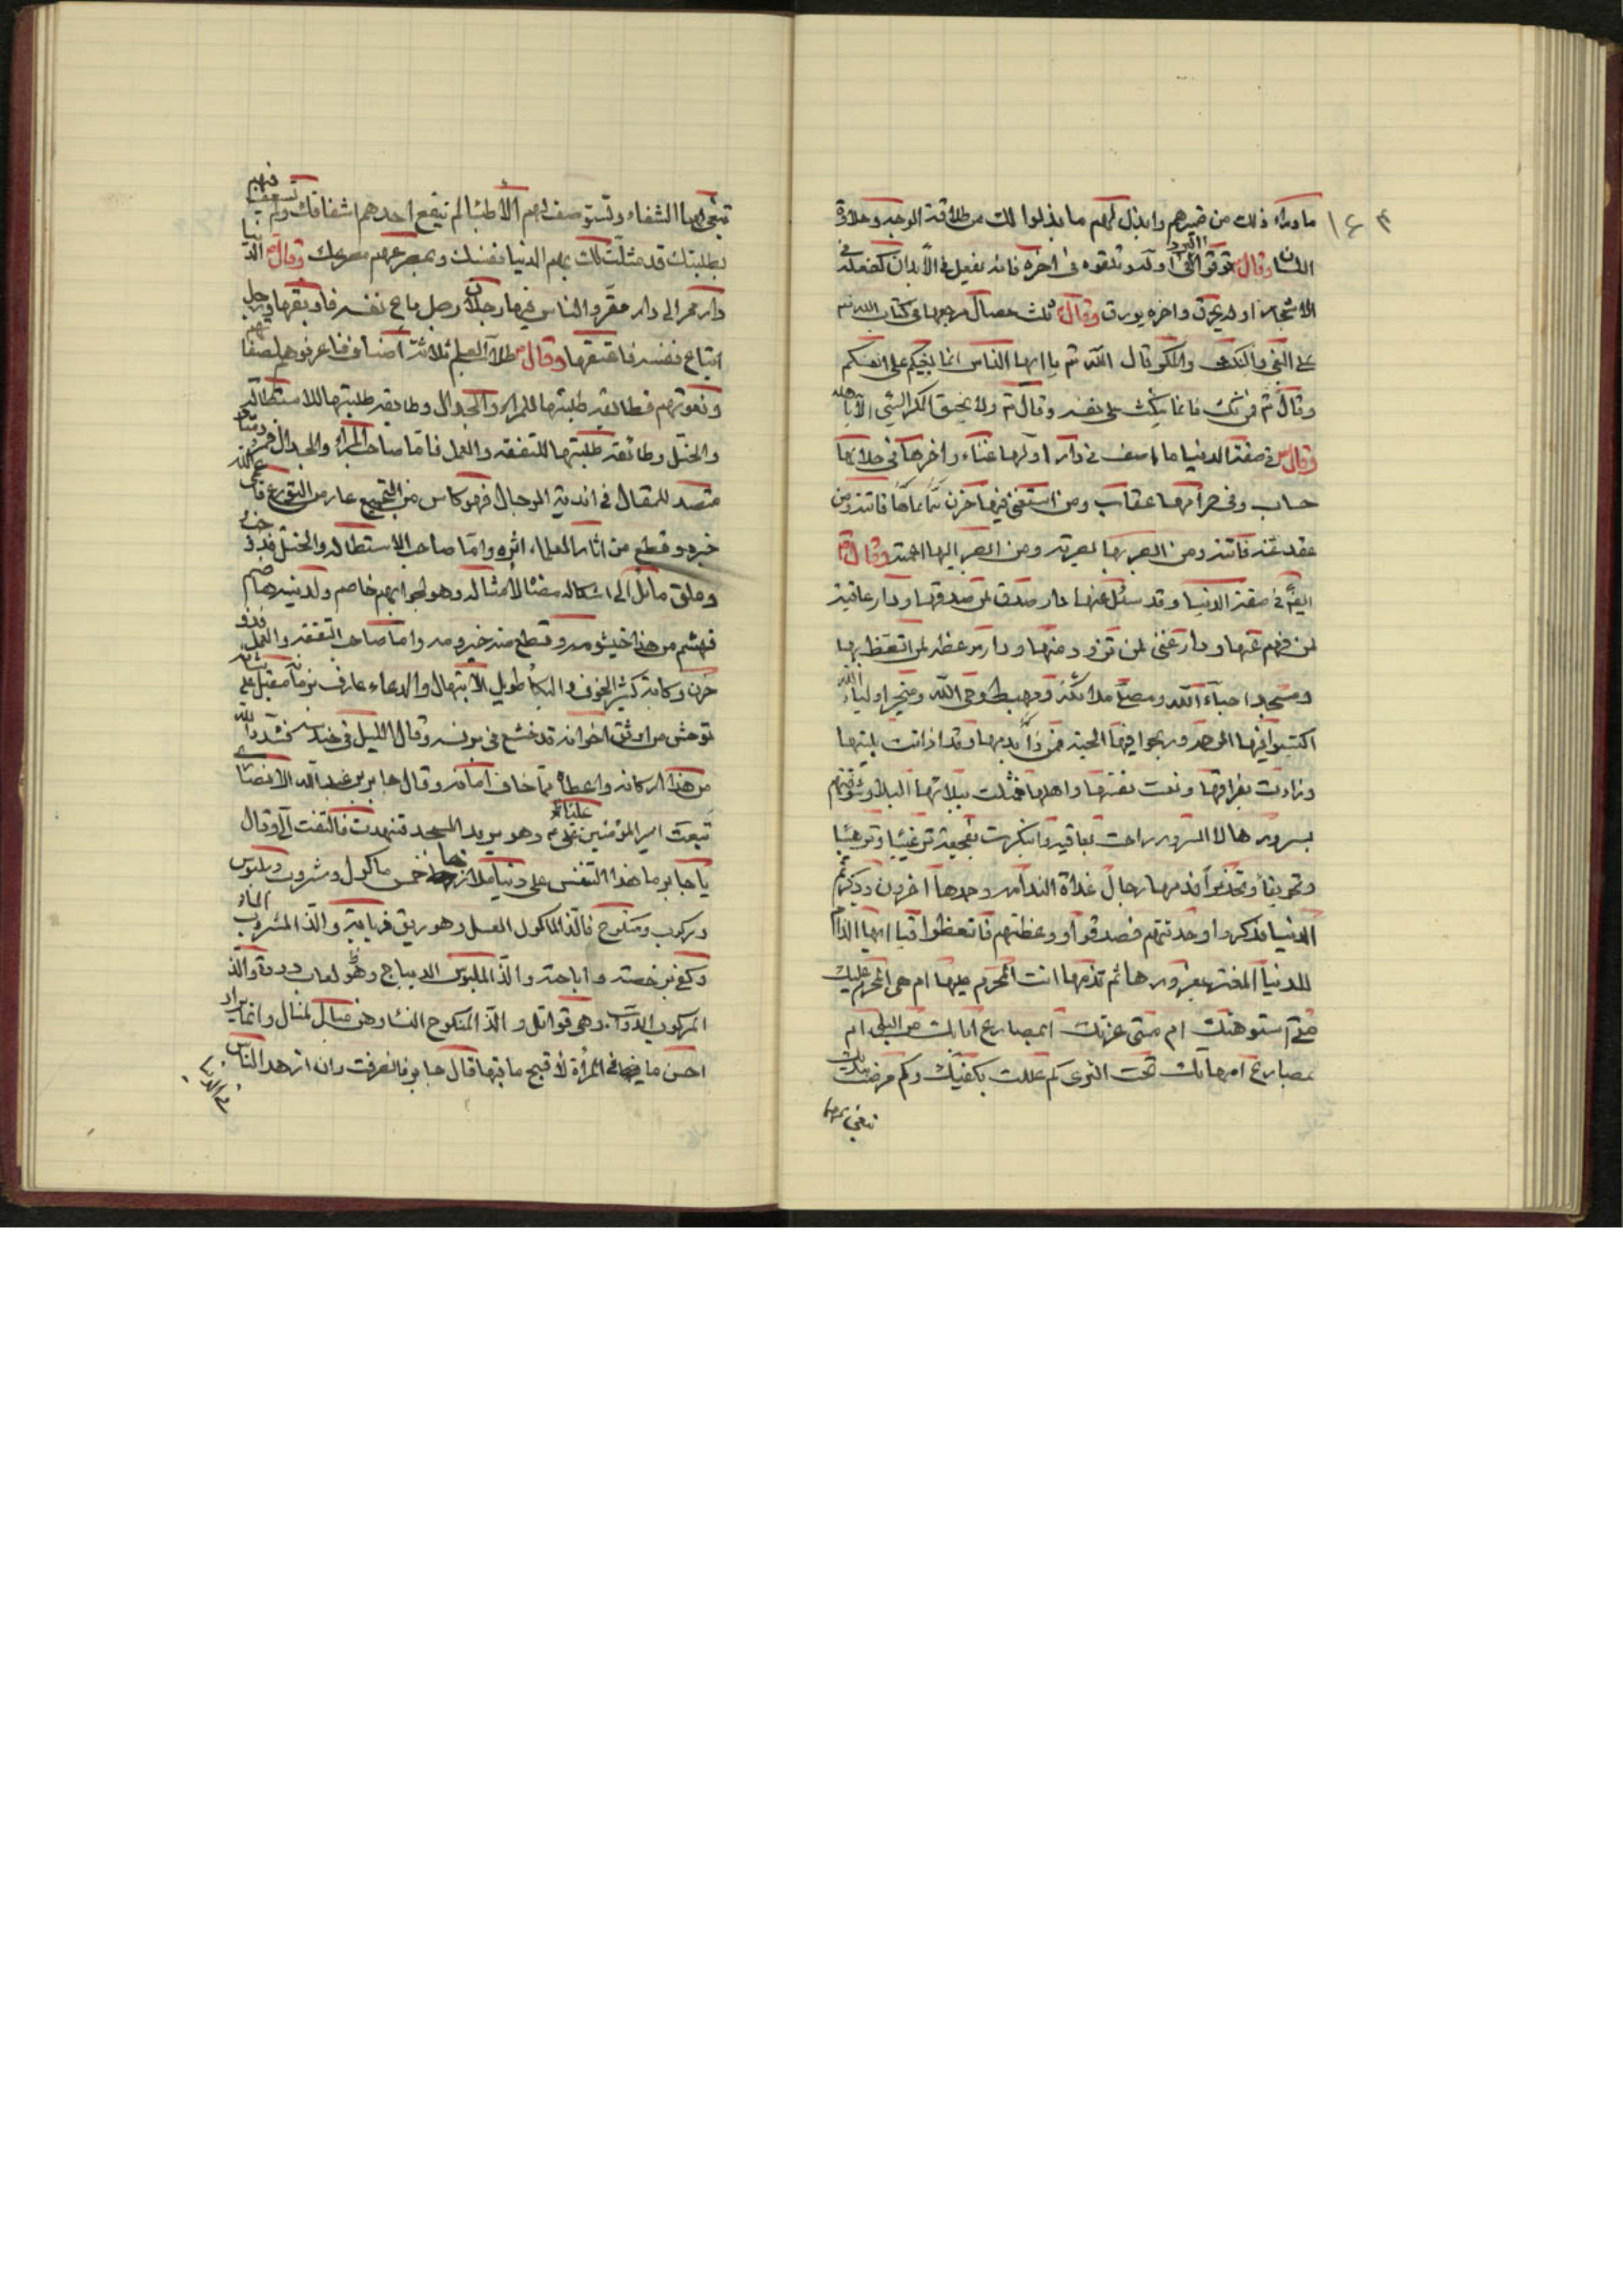 ١٤٣
ما وراء ذلك من ضميرهم وابذل لهم ما بذلوا لك من طلاقة الوجه وحلاوة
اللسان وقال توقوا البرد في اوله وتلقوه في اخره فانه يفعل في الأبدان كفعله في
الاشجار اوله يحرق واخره يورق وقال ثلث خصال مرجعها في كتاب الله
على البغي والنكث والمكر قال الله تع يا ايها الناس انما بغيكم على انفسكم
وقال تع فمن نكث فانما ينكث على نفسه وقال تع ولا يحيق المكر السيئ الا باهله
وقال في صفة الدنيا ما اصف في دار اولها عناء واخرها فنى حلالها
حساب وفي حرامها عقاب ومن استغنى فيها حزن ومن
فاتته ومن ابصر بها بصرته ومن ابصر اليها اعمته وقال
ايضاً في صفة الدنيا وقد سئل عنها دار صدق لمن صدقها ودار عافية
لمن فهم عنها ودار غنى لمن تزود منها ودار موعظة لمن اتعظ بها
ومسجد احباء الله ومصلى ملائكته ومهبط وحي الله ومتجر اولياء الله
اكتسبوا فيها الرحمة وربحوا فيها الجنة فمن ذا يذمها وقد اذانت بلينها
ونادت بفراقها ونعت نفسها واهلها فمثلت ببلائها البلاء وشوقتهم
بسرورها الى السرور راحت بعافية وابتكرت بفجيعة ترغيبا وترهيبا
وتخويفاً وتحذيراً فذمها رجال غداة الندامة وحمدها اخرون ذكرتهم
الدنيا فذكروا وحدثتهم فصدقوا ووعظتهم فاتعظوا فيا ايها الذام
للدنيا المغتر بغرورها ثم تذمها انت المتجرم عليها ام هي المتجرمة عليك
متى استهوتك ام متى غرتك ابمصارع ابائك من البلى ام
بمصارع امهاتك تحت الثرى كم عللت بكفيك وكم مرضت بيديك
تبغي لهما
تبغي لهما الشفاء وتستوصف لهم الأطباء لم ينفع احدهم اشفاقك ولم تسعف فيهم
بطلبتك قد مثلت لك بهم الدنيا نفسك وبمصرعهم مصرعك وقال الدنيا
دار ممر الى دار مقر والناس فيها رجلان رجل باع نفسه فاوبقها ورجل
ابتاع نفسه فاعتقها وقال طلاب العلم ثلاثة أصناف فاعرفوهم بصفاتهم
ونعوتهم فطائفة طلبتها للمراء والجدال وطائفة طلبتها للاستطالة
والختل وطائفة طلبتها للتفقه والعمل فاما صاحب المراء والجدال
متصد للمقال في اندية الرجال فهو كاس من التخشع عار من التورع فاعمى الله
خبره وقطع من اثار العلماء اثره واما صاحب الاستطالة والختل فذو خب
وملق مائل الى اشكاله مضاه لأمثاله وهو لحلوائهم خاصم ولدينه هاضم
فهشم من هذا خيشومه وقطع منه خيزومه واما صاحب التفقه والعمل فذو
حزن وكابة كثير الخوف والبكاء طويل الابتهال والدعاء عارف بزمانه مقبل على شانه
مستوحش من اوثق اخوانه قد خشع في برنسه وقال الليل في حندسه فشد الله
من هذا اركانه واعطاه مما خاف امانه وقال جابر بن عبد الله الانصاري
تبعت امير المؤمنين وهو يريد المسجد فتنهدت فالتفت الي وقال
يا جابر ما هذا التنفس على دنيا ملاذها خمس ماكول ومشروب وملبوس
ومركوب ومنكوح فالذ الماكول العسل وهو ريق ذبابة والذ المشروب الماء
وكفى برخصته واباحته والذ الملبوس الديباج وهو لعاب دودة والذ
المركوب الدواب وهي قواتل والذ المنكوح النساء وهن مبال لمبال وانما يراد
احسن ما في المراة لأقبح ما فيها قال جابر فانصرفت وان ازهد الناس
في الدنيا